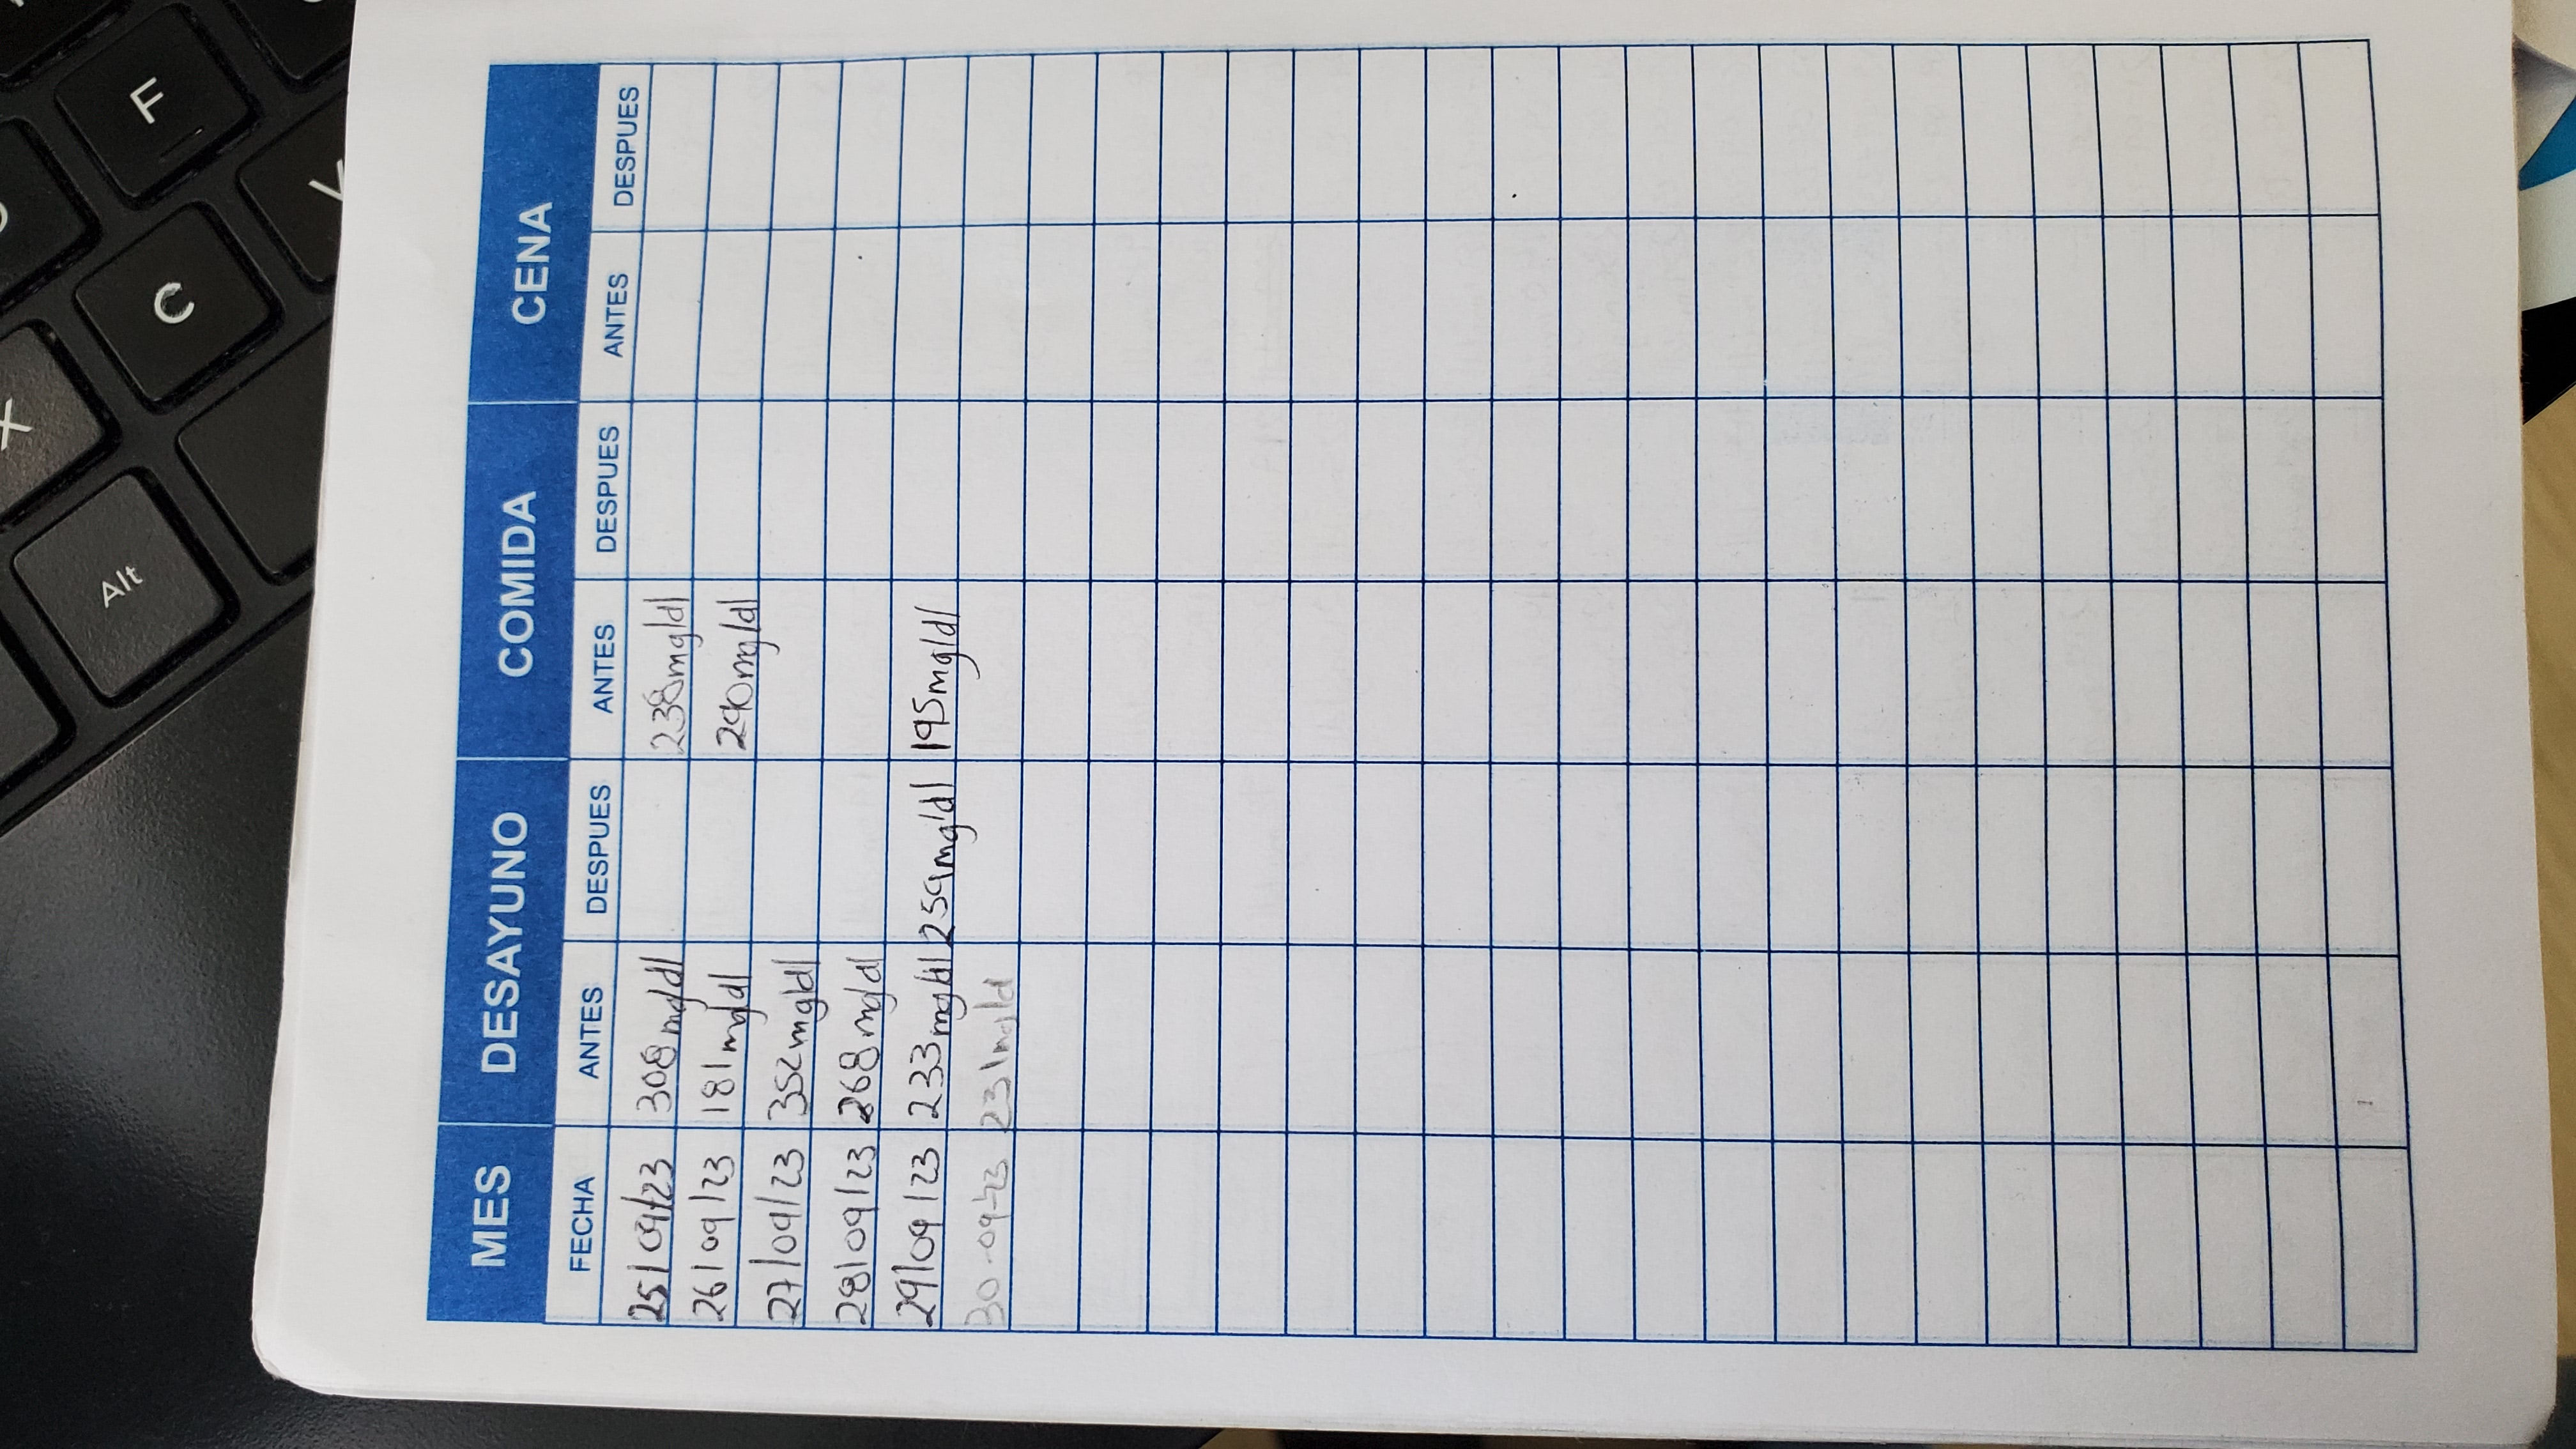 Alt
X
C
F
V
MES DESAYUNO COMIDA CENA
FECHA ANTES DESPUES ANTES DESPUES ANTES DESPUES
25/09/23 308mg/dl 238mg/dl
26/09/23 181mg/dl 290mg/dl
27/09/23 352mg/dl
28/09/23 268mg/dl
29/09/23 233mg/dl 259mg/dl 195mg/dl
30-09-23 231mg/d